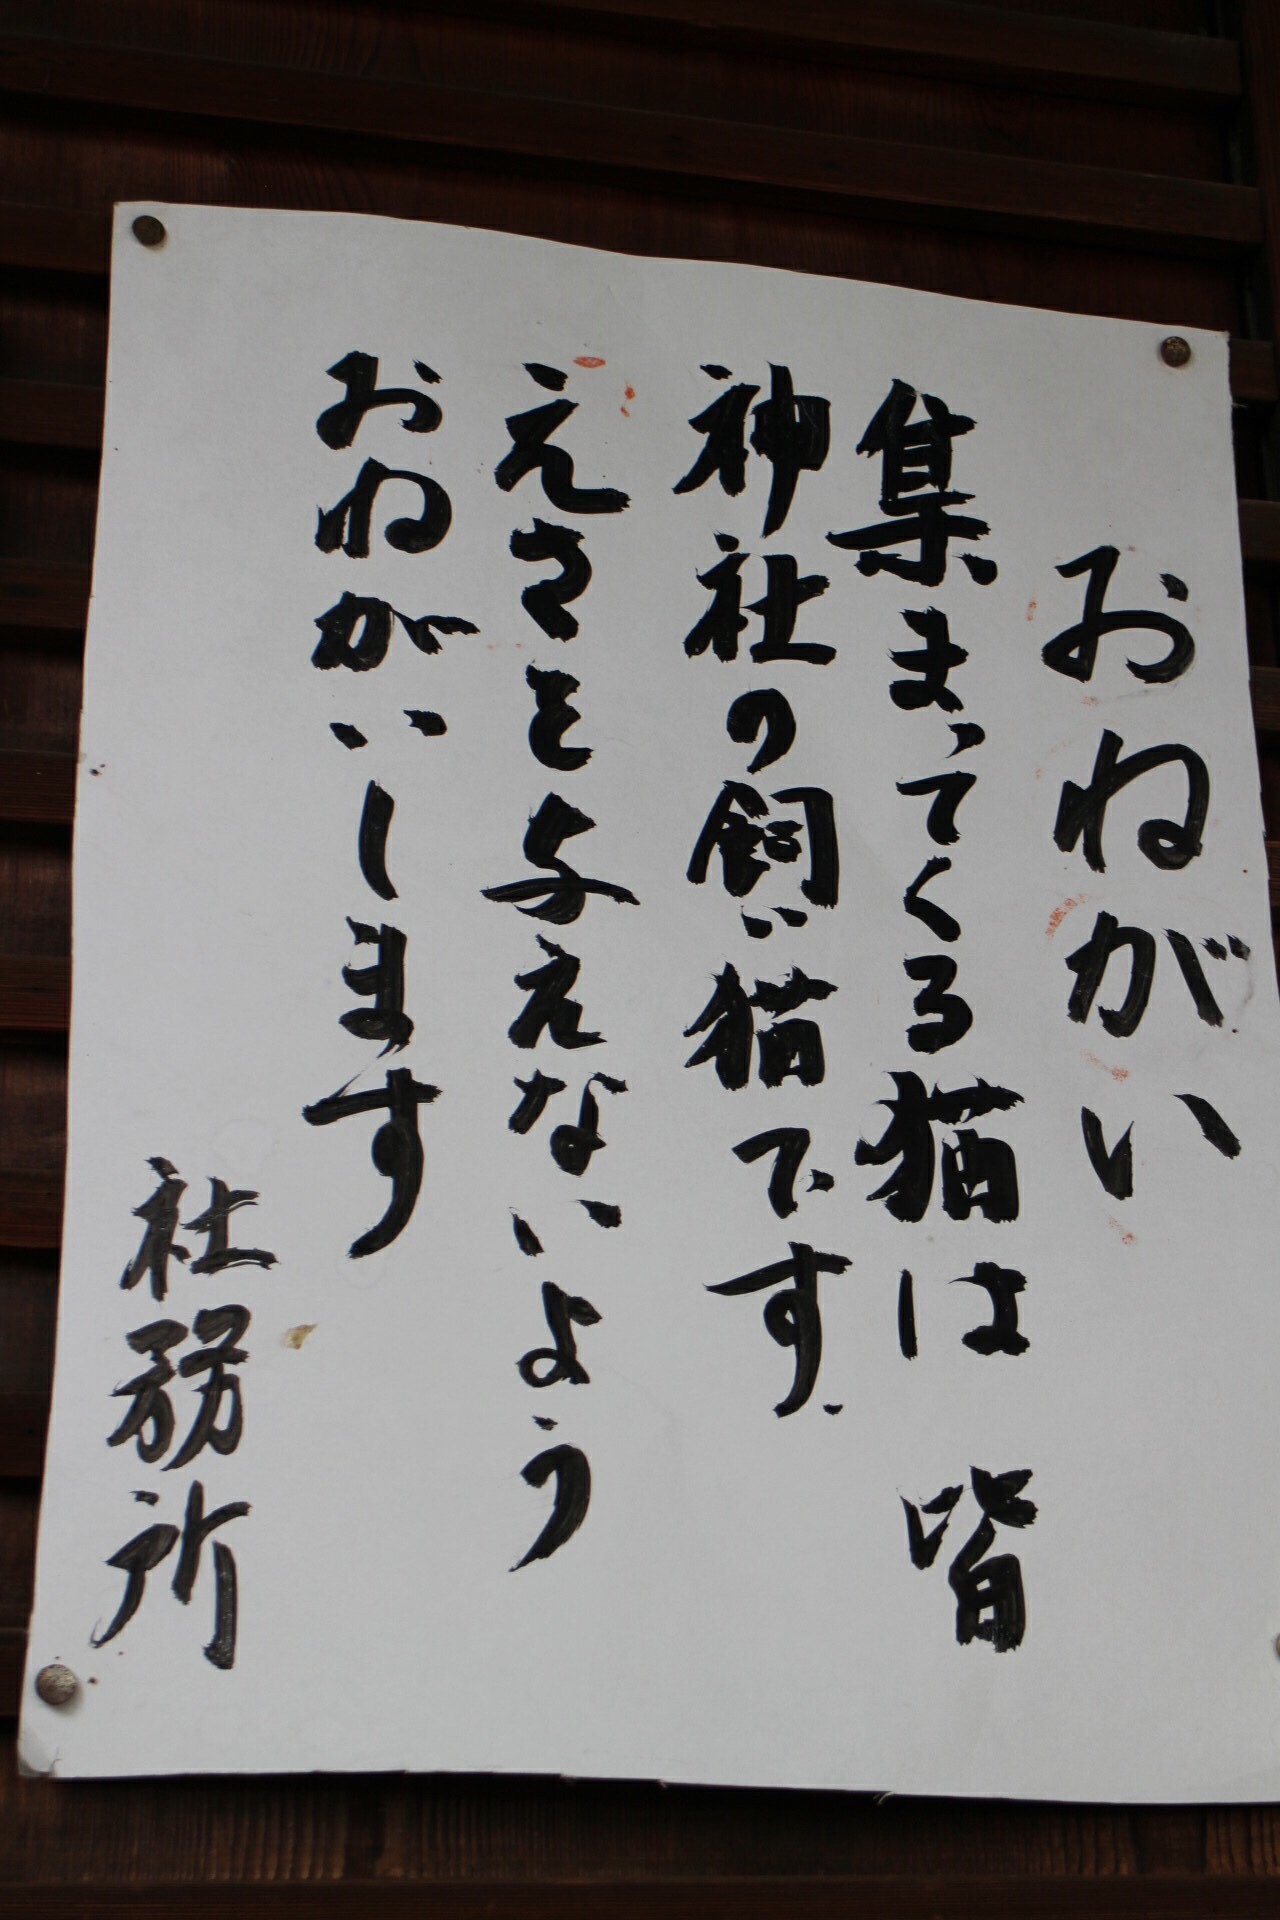 おねがい
集まってくる猫は 皆
神社の飼い猫です.
えさを与えないよう
おねがいします
社務所